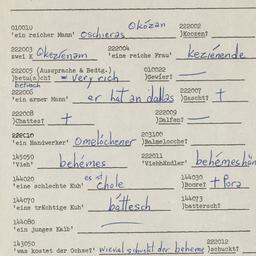 010010 Okózan 222002
'ein reicher Mann' Oschieras )Kozen?
222003 222004
zwei K Okezienam 'eine reiche Frau' keziénende
222005 (Aussprache & Bedtg.) 010022
)betu(a)cht = very rich )Gevier?
betuach
222006 222007
'ein armer Mann' er hat an dallas )Gascht? +
222008 222009
)Chattes? + )Dalfen?
222010 203100
'ein Handwerker' Omelóchener )Balmelooche?
145050 222011
'Vieh' behémes )Viehhändler' behémeshän
144020 es ist 144030
'eine schlechte Kuh' chole )Boore? + Pora
144070 144073
'eine trächtige Kuh' báttesch )battersch?
144080
'ein junges Kalb'
143050 222012
'was kostet der Ochse?' wieviel schuckt der beheme )schuckt?